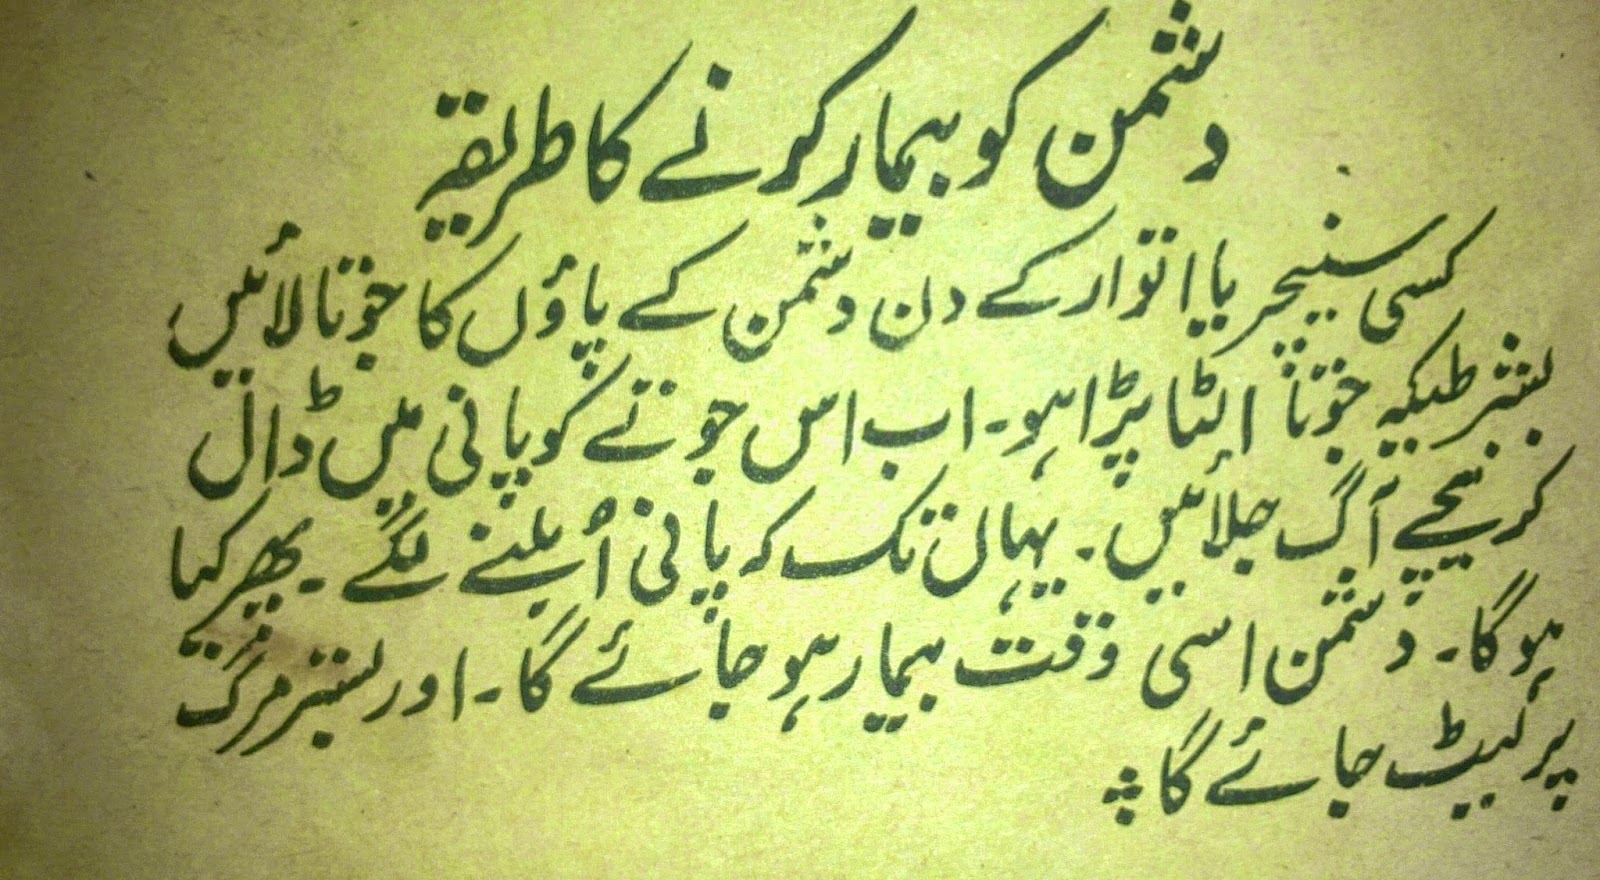 دشمن کو بیمار کرنے کا طریقہ
کسی سنیچر یا اتوار کے دن دشمن کے پاؤں کا جوتا لائیں
بشرطیکہ جوتا الٹا پڑا ہو۔ اب اس جوتے کو پانی میں ڈال
کر نیچے آگ جلائیں۔ یہاں تک کہ پانی اُبلنے لگے۔ پھر کیا
ہوگا۔ دشمن اسی وقت بیمار ہو جائے گا۔ اور بستر مرگ
پر لیٹ جائے گا